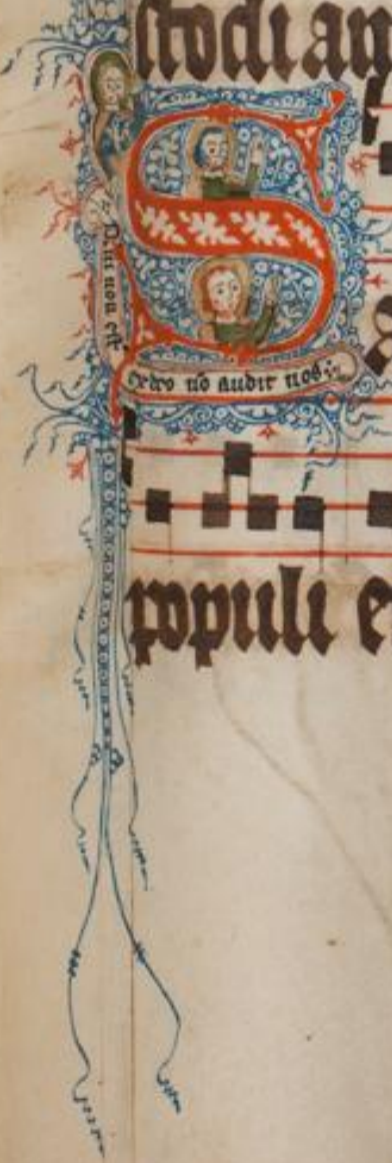 stodi an
S
Qui non est
credo nō audit nos
populi e